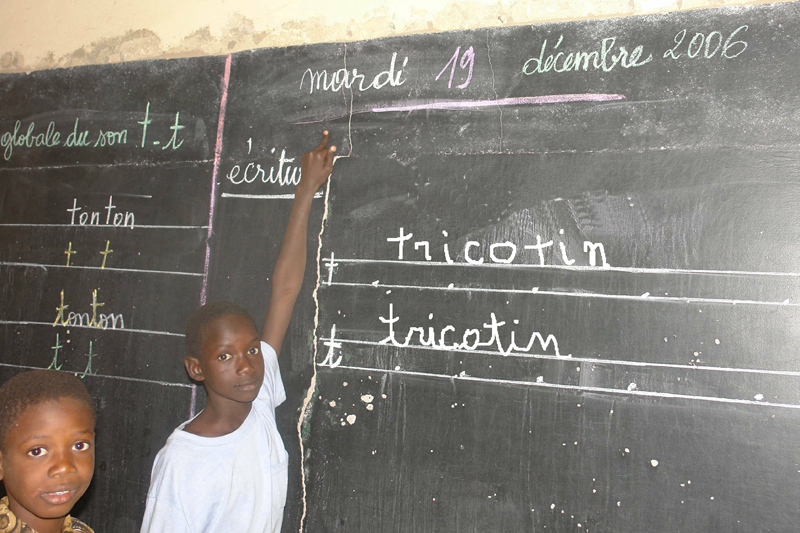 mardi 19 décembre 2006
globale du son t - t
tonton
t t
tonton
t t
écriture
t tricotin
t tricotin